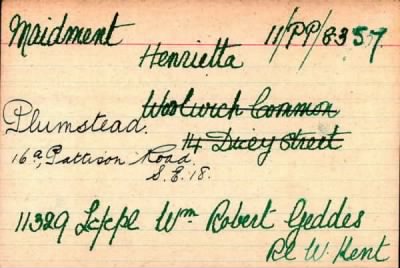 Maidment 11/PP/8357
Henrietta
Woolwich Common
Plumstead.
14 Street
16a, Pattison Road.
S.E.18.
11329 Lc/cpl Wm Robert Geddes
Rl W. Kent